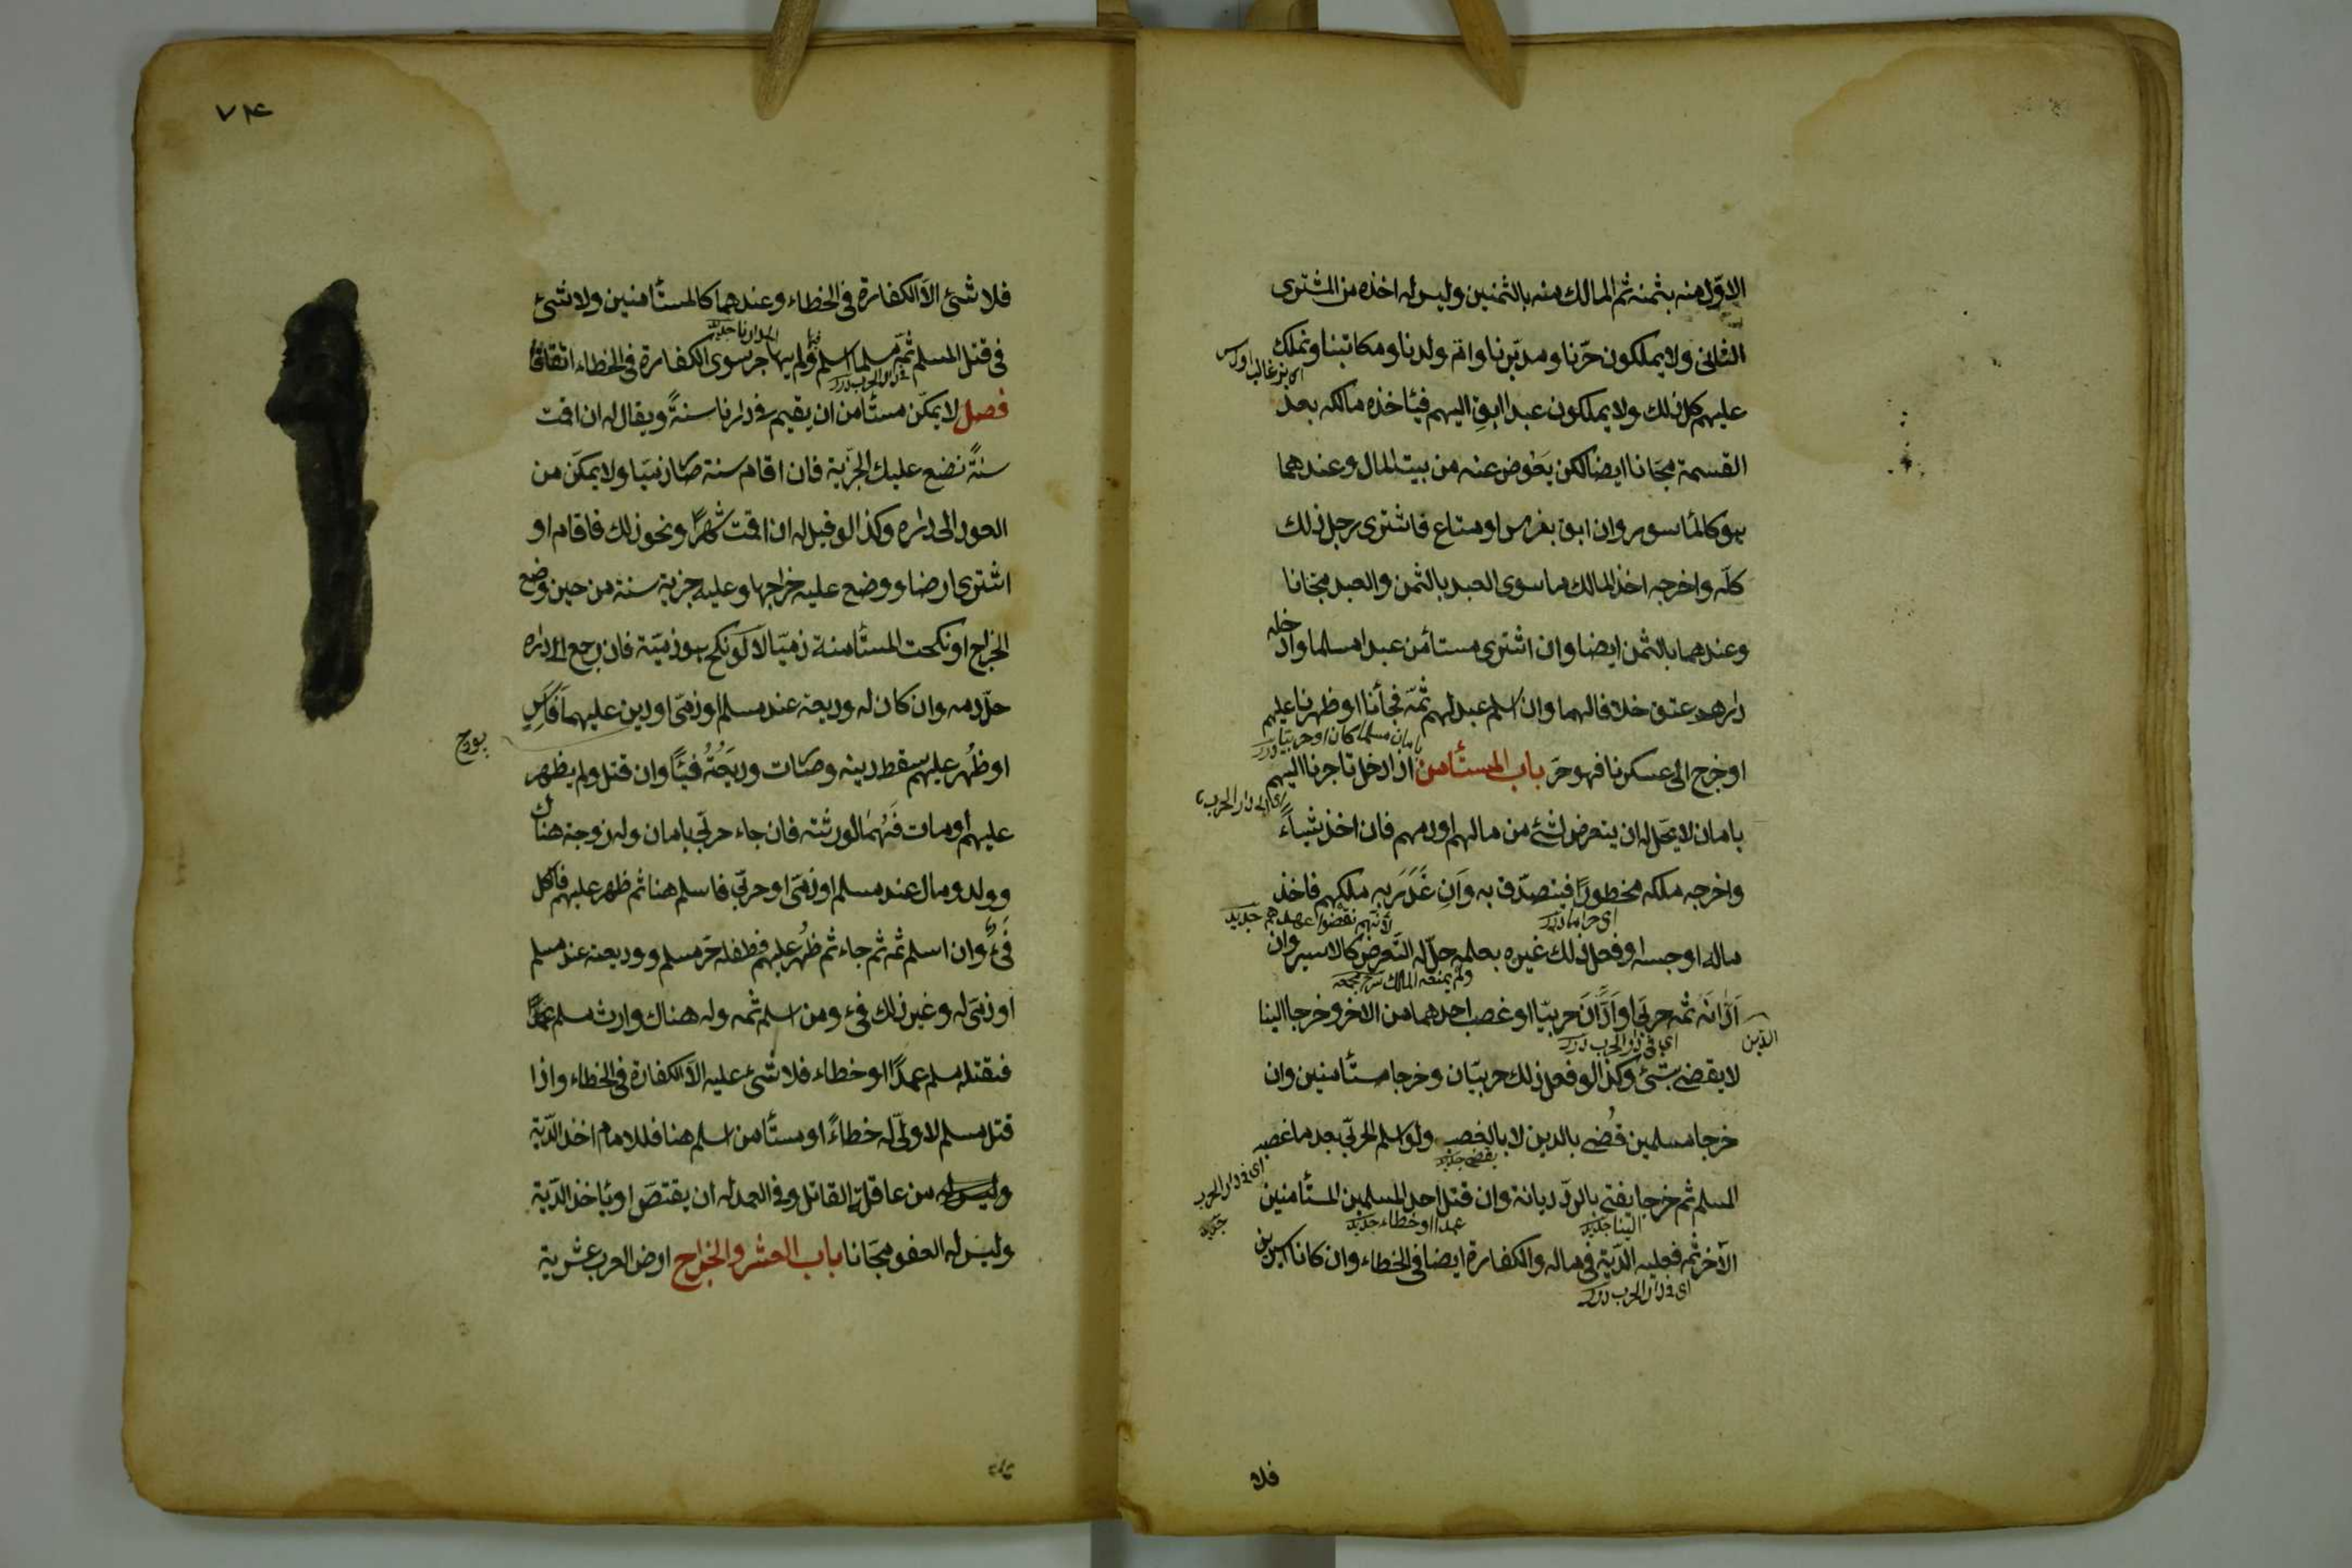 الاوّل منه بثمنه ثم المالك منه بالثمنين وليس له اخذه من المشترى
الثانى ولا يملكون حرّنا ومدبّرنا وامّ ولدنا ومكاتبنا ونملك
عليهم كل ذلك ولا يملكون عبدا ابق اليهم فيأخذه مالكه بعد
القسمة مجّانا ايضا لكن يعوّض عنه من بيت المال وعندهما
هو كالمأسور وان ابق بفرس او متاع فاشترى رجل ذلك
كلّه واخرجه اخذ المالك ما سوى العبد بالثمن والعبد مجّانا
وعندهما بالثمن ايضا وان اشترى مستأمن عبدا مسلما وادخله
دارهم عتق خلافا لهما وان اسلم عبد لهم ثمّه فجأنا او ظهرنا عليهم
او خرج الى عسكرنا فهو حرّ باب المستأمن اذا دخل تاجرنا اليهم
بامان مسلما كان او حربيّا درر
اى الى دار الحرب
بامان لا يحلّ له ان يتعرض لشئ من مالهم او دمهم فان اخذ شيأً
واخرجه ملكه محظورًا فيتصدّق به وان غدر به ملكهم فاخذ
اى حراما درر
لانّهم نقضوا عهدهم جديد
ماله او حبسه او فعل ذلك غيره بعلمه حلّ له التّعرض كالاسير وان
ولم يمنعه الملك
ادانه ثمّه حربى او ادان حربيّا او غصب احدهما من الاخر وخرجا الينا
الدين
اى فى دار الحرب درر
لا يقضى بشئ وكذا لو فعل ذلك حربيّان وخرجا مستأمنين وان
خرجا مسلمين قُضى بالدين لا بالغصب ولو اسلم الحربىّ بعد ما غصبه
يقضى جديد
المسلم ثم خرجا يفتى بالردّ ديانة وان قتل احد المسلمين المستأمنين
اى فى دار الحرب
جديد
الينا جديد
عمدا او خطاء جديد
الآخر ثمّه فعليه الدّية فى ماله والكفارة ايضا فى الخطاء وان كانا اسيرين
اى فى دار الحرب درر
فلا
٧٤
فلا شئ الاّ الكفارة فى الخطاء وعندهما كالمستأمنين ولا شئ
فى قتل المسلم ثمّه مسلما اسلم ولم يهاجر سوى الكفارة فى الخطاء اتفاقا
الى دارنا جديد
فى دار الحرب درر
فصل لا يمكّن مستأمن ان يقيم فى دارنا سنةً ويقال له ان اقمت
سنةً نضع عليك الجزية فان اقام سنة صار ذميّا ولا يمكّن من
العود الى داره وكذا لو قيل له ان اقمت شهرًا ونحو ذلك فاقام او
اشترى ارضا ووضع عليه خراجها وعليه جزية سنة من حين وضع
الخراج او نكحت المستأمنة ذميّا لا لو نكح هو ذميّة فان رجع الى داره
حلّ دمه وان كان له وديعة عند مسلم او ذمّى او دين عليهما فاسر
او ظُهر عليهم سقط دينه وصارت وديعتُهُ فيئًا وان قتل ولم يظهر
عليهم او مات فهما لورثته فان جاء حربىّ بامان وله زوجة هناك
وولد ومال عند مسلم او ذمّى او حربىّ فاسلم هنا ثم ظهر عليهم فالكل
فَئٌ وان اسلم ثمه ثم جاء ثم ظُهر عليهم فطفله حرّ مسلم ووديعته عند مسلم
او ذمّى له وغير ذلك فئ ومن اسلم ثمّه وله هناك وارث مسلم
فقتله مسلم عمدًا او خطاء فلا شئ عليه الاّ الكفارة فى الخطاء واذا
قتل مسلم لا ولىّ له خطاءً او مستأمن اسلم هنا فللامام اخذ الدّية
من عاقلة القاتل وفى العمد له ان يقتصّ او يأخذ الدّية
وليس له العفو مجّانا باب العشر والخراج ارض العرب عشرية